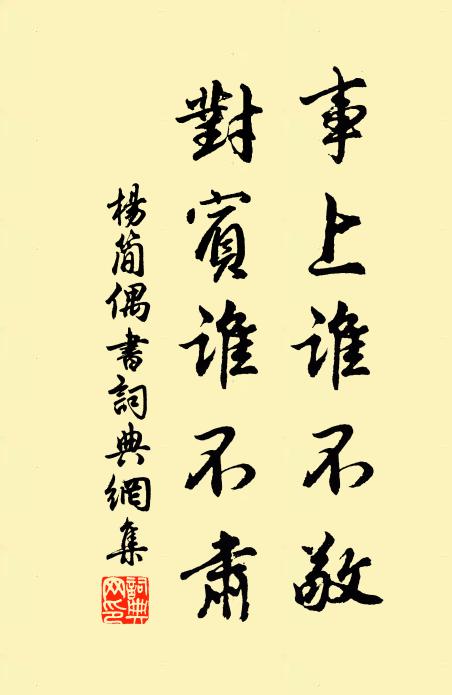 事上誰不敬
對賓誰不肅
楊簡偶書詞典網集